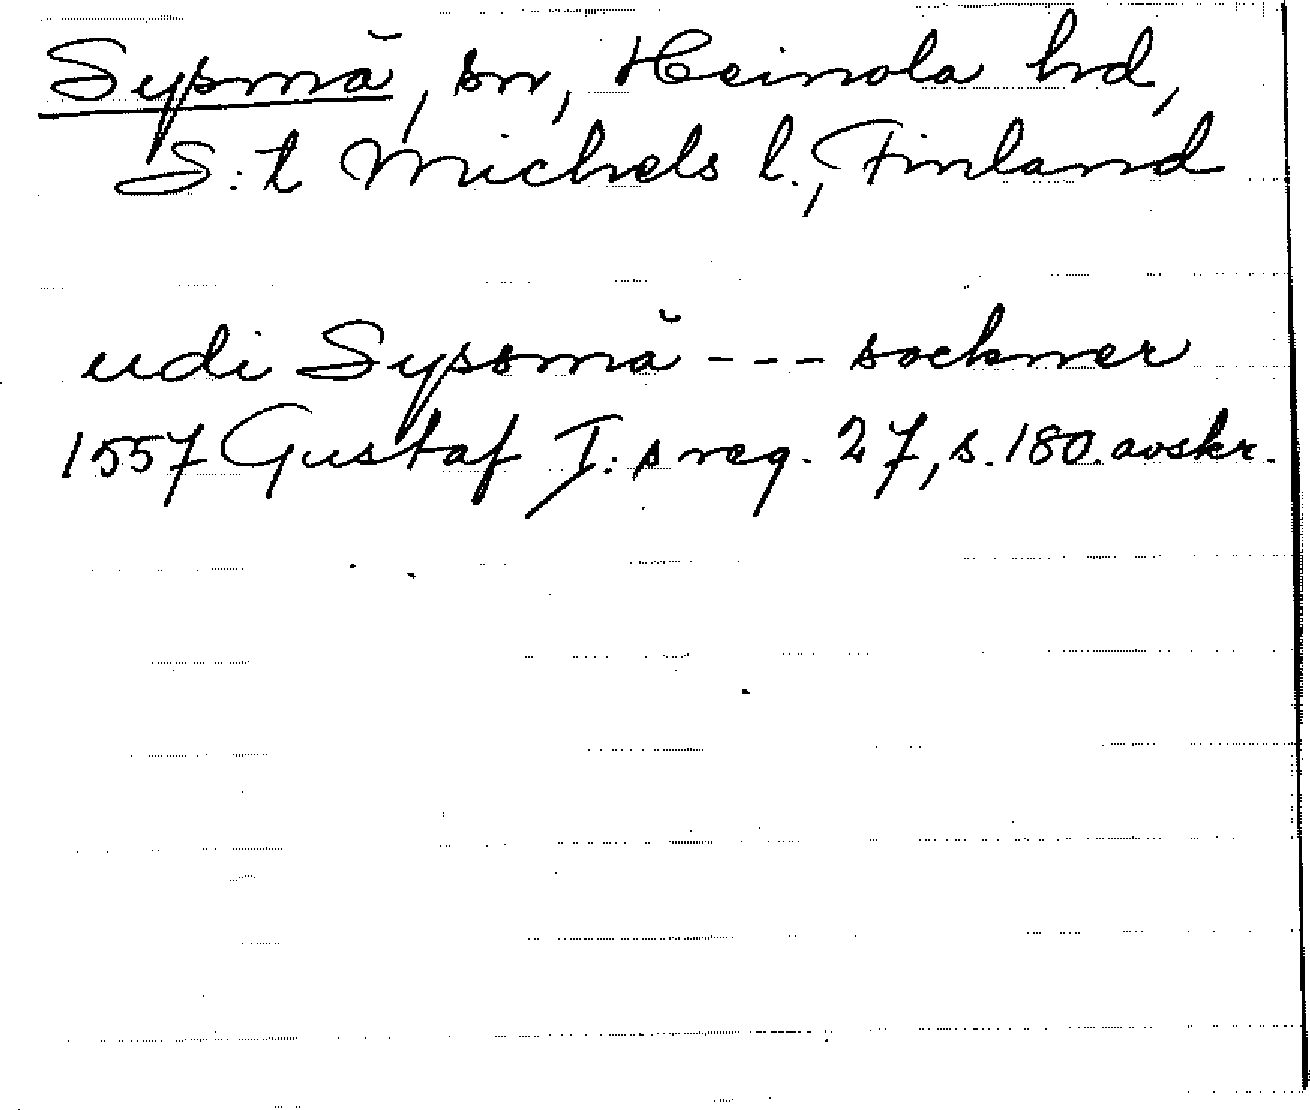 Sysmä, sn, Heinola hd,
S:t Michels l., Finland
udi Syssmä --- sockner
1557 Gustaf I:s reg. 27, s. 180. avskr.